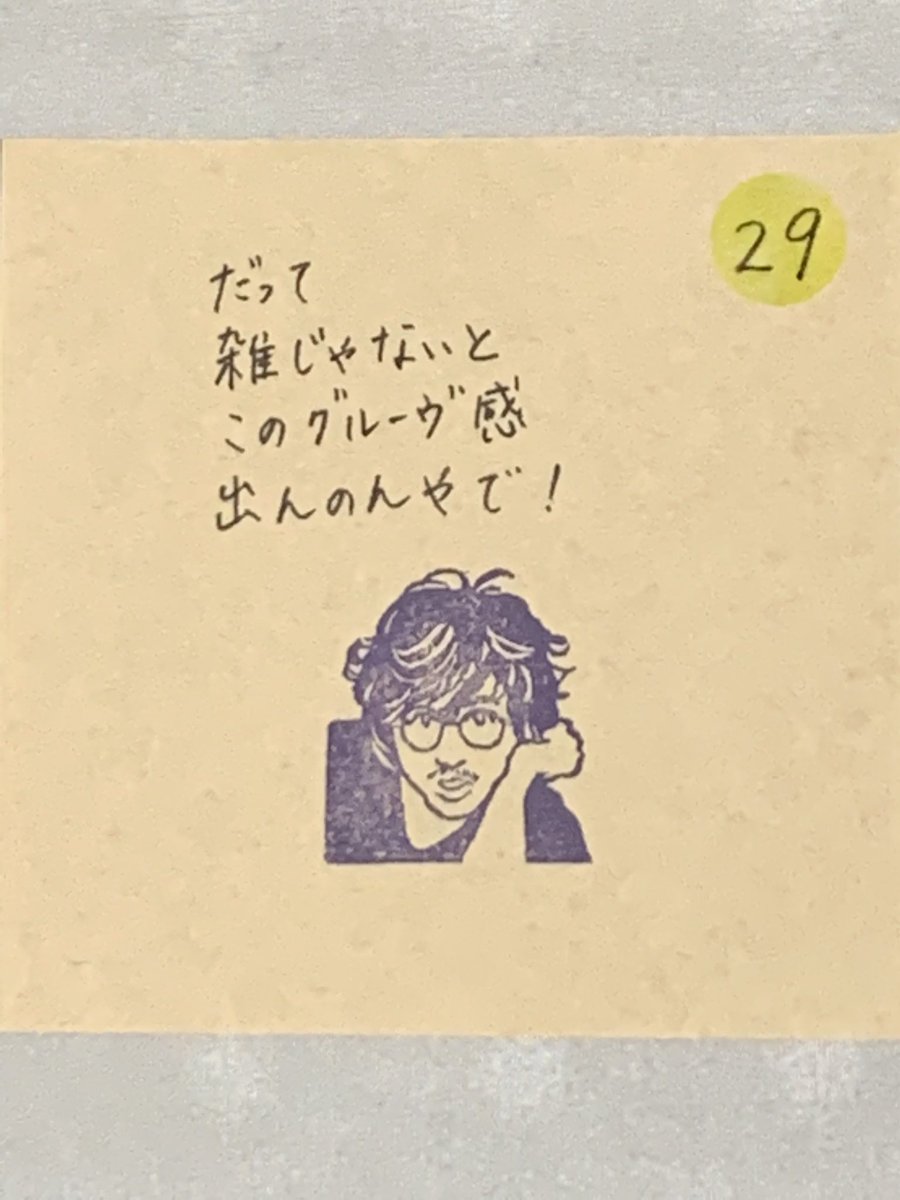 29
だって
雑じゃないと
このグルーヴ感
出んのんやで!